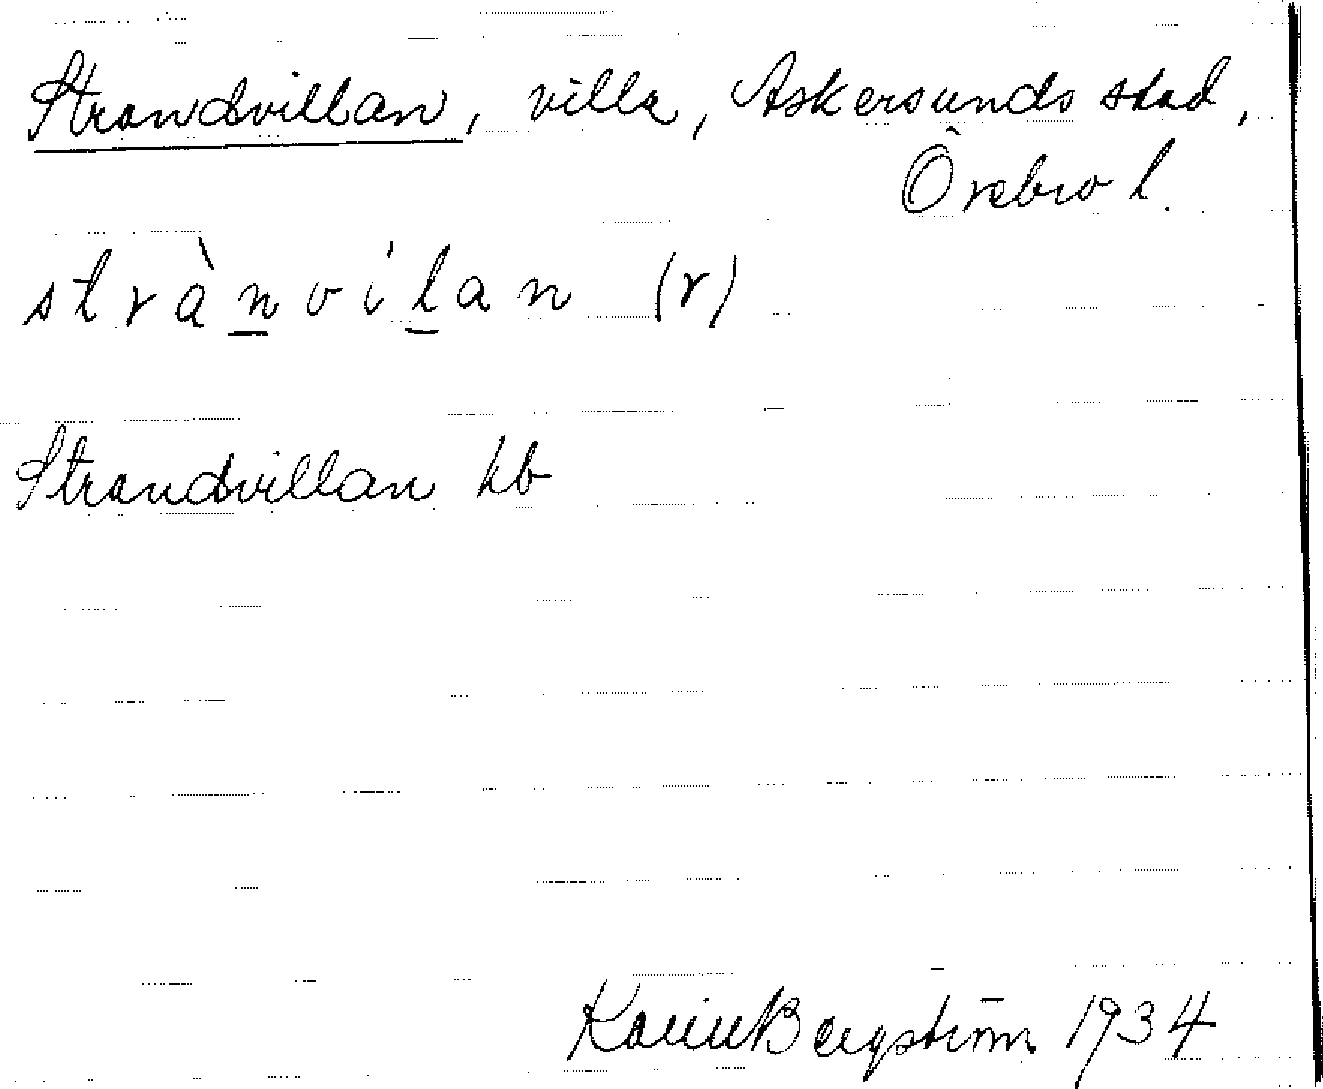 Strandvillan, villa, Askersunds stad,
Örebro l.
strànvílan (r)
Strandvillan kb
Karin Bergström 1934